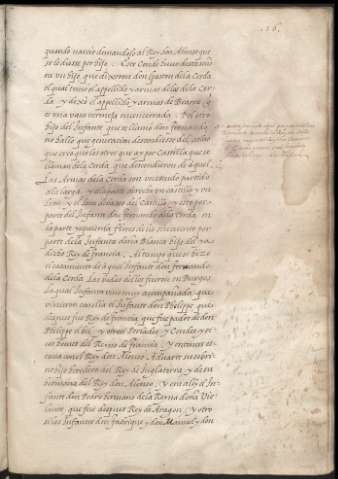 .26.
quando naçio demandose al Rey don Alonso que
se lo diesse por hijo. Este Conde tuuo deste su
un hijo, que dixeron don Gaston de la Cerda
el qual tomo el appellido y armas de los de la Cer-
da, y dexo el appellido y armas de Bearne, q
era una vaca vermeja encencerrada. Del otro
hijo del Infante que se llamo don fernando,
no hallo que generacion descendiesse del, saluo
que creo que los otros que ay por Castilla que se
llaman de la Cerda, que descendieron de aquel.
Las Armas de la Cerda son un escudo partido
a la larga, y a la parte derecha un castillo y un
leon, y el leon debaxo del Castillo y esto por
parte del Infante don fernando de la Cerda, en
la parte yzquierda flores de lis sin cuento por
parte de la Infanta doña Blanca hija del ya
dicho Rey de francia. Al tiempo que se hizo
el casamiento de aquel Infante don fernando
de la Cerda. Las bodas dellos fueron en Burgos
La qual Infanta vino muy acompañada, que
vinieron con ella el Infante don Philippe que
despues fue Rey de francia, que fue padre de don
Philippe el bel, y otros Perlados y Condes y ri-
cos homes del Reyno de francia, y entonces es-
taua con el Rey don Alonso Aduarte su sobri-
no hijo heredero del Rey de Inglaterra, y de su
hermana del Rey don Alonso, y con ellos el In-
fante don Pedro hermano de la Reyna doña Vio-
lante, que fue despues Rey de Aragon, y otro
si los Infantes don fadrique, y don Manuel, y don